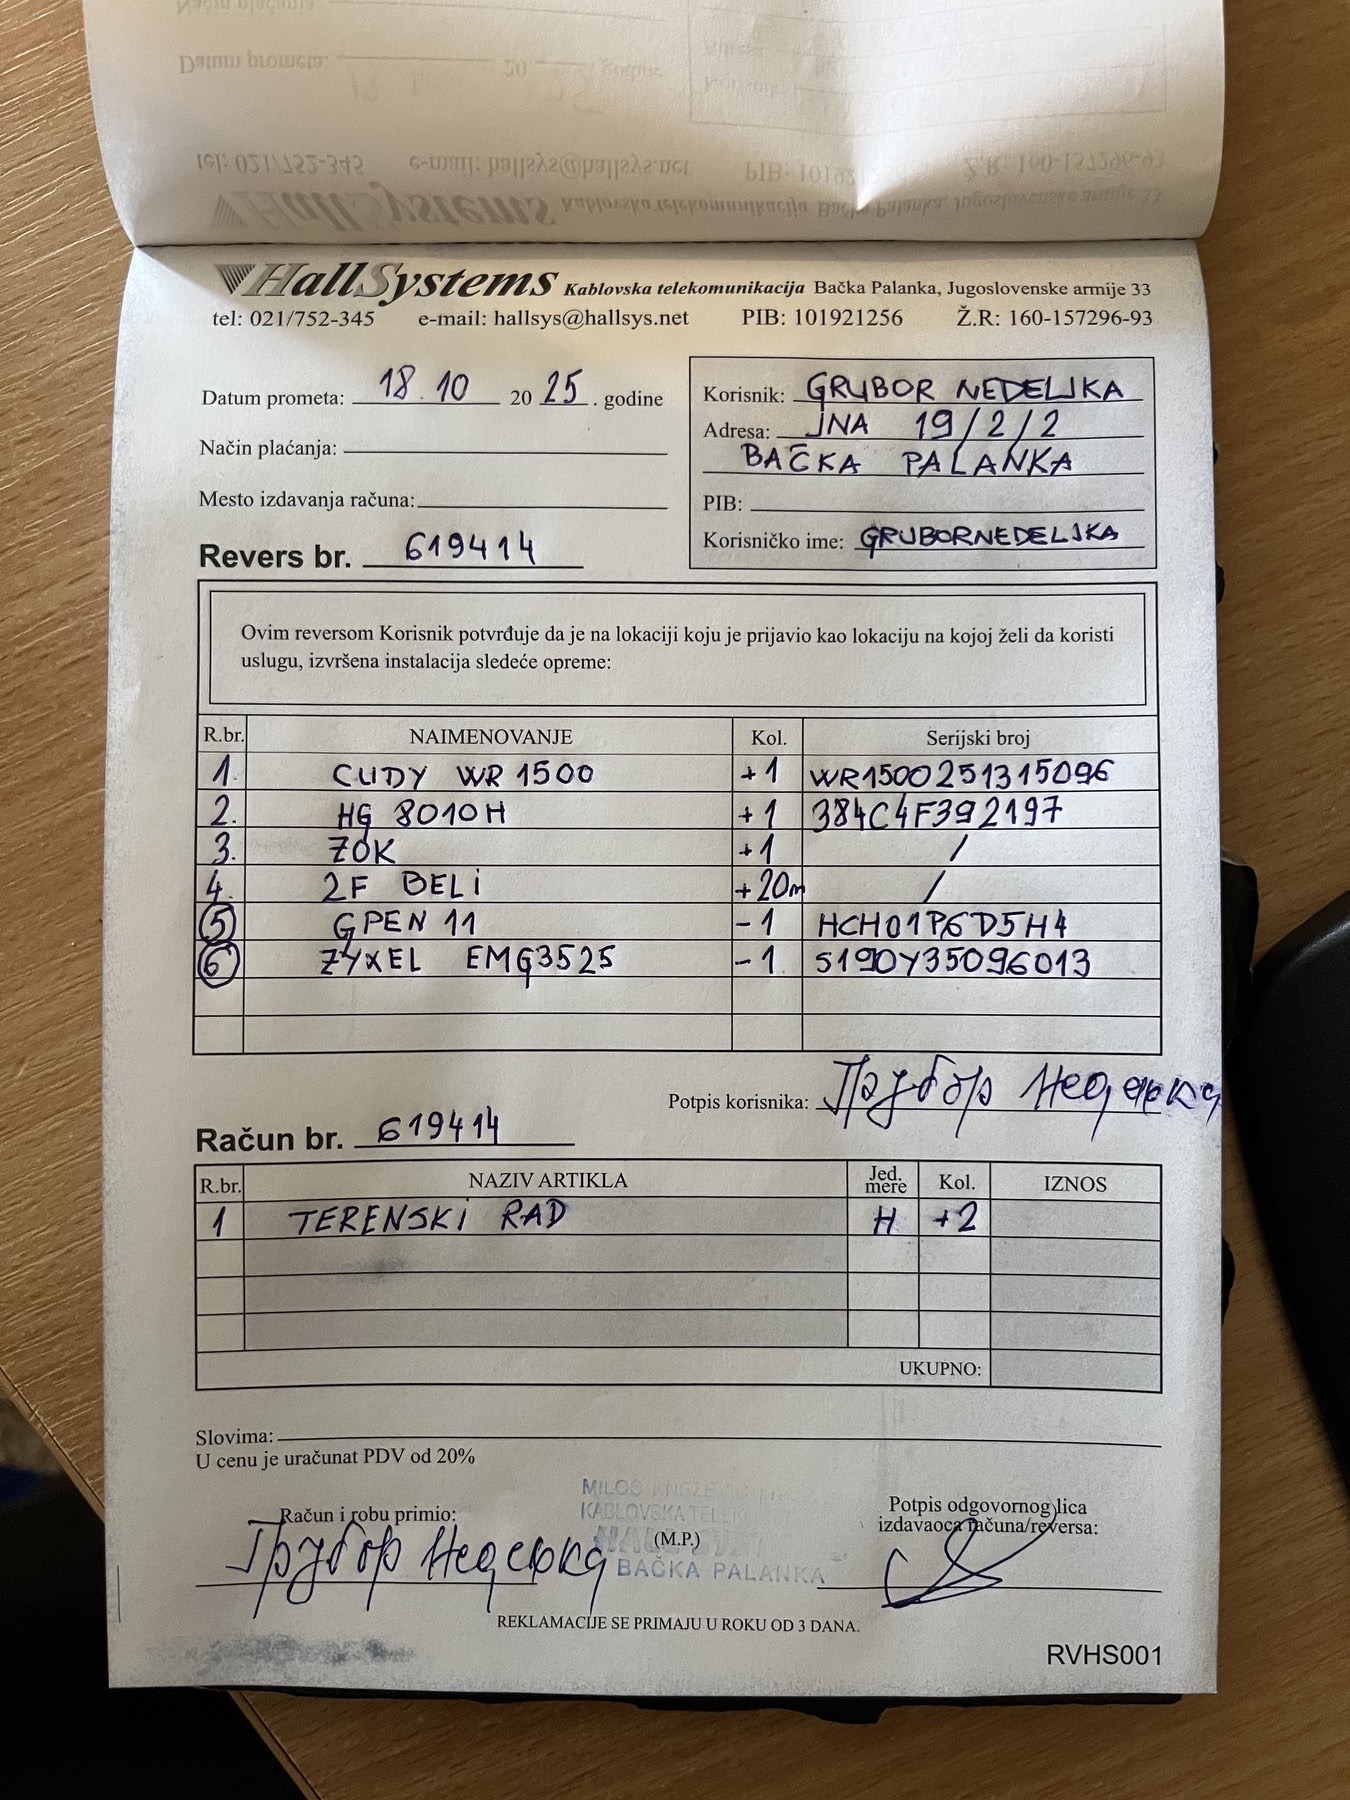 HallSystems Kablovska telekomunikacija Bačka Palanka, Jugoslovenske armije 33
tel: 021/752-345 e-mail: hallsys@hallsys.net PIB: 101921256 Ž.R: 160-157296-93
Datum prometa: 18.10 20 25. godine
Način plaćanja:
Mesto izdavanja računa:
Revers br. 619414
Korisnik: GRUBOR NEDELJKA
Adresa: JNA 19/2/2
BAČKA PALANKA
PIB:
Korisničko ime: GRUBORNEDELJKA
Ovim reversom Korisnik potvrđuje da je na lokaciji koju je prijavio kao lokaciju na kojoj želi da koristi
uslugu, izvršena instalacija sledeće opreme:
R.br. NAIMENOVANJE Kol. Serijski broj
1. CUDY WR 1500 +1 WR1500251315096
2. HG 8010H +1 384C4F392197
3. ZOK +1 /
4. 2F BELI +20m /
5 GPEN 11 -1 HCH01P6D5H4
6 ZYXEL EMG3525 -1 S190Y35096013
Potpis korisnika: Грубор Недељка
Račun br. 619414
R.br. NAZIV ARTIKLA Jed. mere Kol. IZNOS
1 TERENSKI RAD H +2
UKUPNO:
Slovima:
U cenu je uračunat PDV od 20%
Račun i robu primio:
Грубор Недељка
KABLOVSKA
(M.P.)
BAČKA PALANKA
Potpis odgovornog lica
izdavaoca računa/reversa:
REKLAMACIJE SE PRIMAJU U ROKU OD 3 DANA.
RVHS001